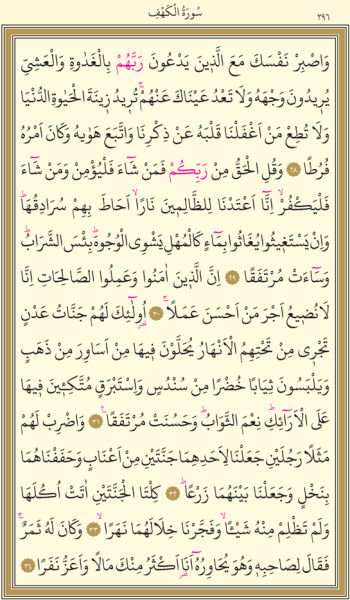 سُورَةُ الْكَهْفِ ٢٩٦
وَاصْبِرْ نَفْسَكَ مَعَ الَّذ۪ينَ يَدْعُونَ رَبَّهُمْ بِالْغَدٰوةِ وَالْعَشِيِّ
يُر۪يدُونَ وَجْهَهُ وَلَا تَعْدُ عَيْنَاكَ عَنْهُمْۚ تُر۪يدُ ز۪ينَةَ الْحَيٰوةِ الدُّنْيَا
وَلَا تُطِعْ مَنْ اَغْفَلْنَا قَلْبَهُ عَنْ ذِكْرِنَا وَاتَّبَعَ هَوٰيهُ وَكَانَ اَمْرُهُ
فُرُطًا ﴿٢٨﴾ وَقُلِ الْحَقُّ مِنْ رَبِّكُمْ فَمَنْ شَٓاءَ فَلْيُؤْمِنْ وَمَنْ شَٓاءَ
فَلْيَكْفُرْۙ اِنَّٓا اَعْتَدْنَا لِلظَّالِم۪ينَ نَارًاۙ اَحَاطَ بِهِمْ سُرَادِقُهَاۜ
وَاِنْ يَسْتَغ۪يثُوا يُغَاثُوا بِمَٓاءٍ كَالْمُهْلِ يَشْوِي الْوُجُوهَۜ بِئْسَ الشَّرَابُۜ
وَسَٓاءَتْ مُرْتَفَقًا ﴿٢٩﴾ اِنَّ الَّذ۪ينَ اٰمَنُوا وَعَمِلُوا الصَّالِحَاتِ اِنَّا
لَا نُض۪يعُ اَجْرَ مَنْ اَحْسَنَ عَمَلًاۚ ﴿٣٠﴾ اُو۬لٰٓئِكَ لَهُمْ جَنَّاتُ عَدْنٍ
تَجْر۪ي مِنْ تَحْتِهِمُ الْاَنْهَارُ يُحَلَّوْنَ ف۪يهَا مِنْ اَسَاوِرَ مِنْ ذَهَبٍ
وَيَلْبَسُونَ ثِيَابًا خُضْرًا مِنْ سُنْدُسٍ وَاِسْتَبْرَقٍ مُتَّكِـ۪ٔينَ ف۪يهَا
عَلَى الْاَرَٓائِكِۜ نِعْمَ الثَّوَابُۜ وَحَسُنَتْ مُرْتَفَقًا۟ ﴿٣١﴾ وَاضْرِبْ لَهُمْ
مَثَلًا رَجُلَيْنِ جَعَلْنَا لِاَحَدِهِمَا جَنَّتَيْنِ مِنْ اَعْنَابٍ وَحَفَفْنَاهُمَا
بِنَخْلٍ وَجَعَلْنَا بَيْنَهُمَا زَرْعًاۜ ﴿٣٢﴾ كِلْتَا الْجَنَّتَيْنِ اٰتَتْ اُكُلَهَا
وَلَمْ تَظْلِمْ مِنْهُ شَيْـًٔاۙ وَفَجَّرْنَا خِلَالَهُمَا نَهَرًاۙ ﴿٣٣﴾ وَكَانَ لَهُ ثَمَرٌۚ
فَقَالَ لِصَاحِبِه۪ وَهُوَ يُحَاوِرُهُٓ اَنَا۬ اَكْثَرُ مِنْكَ مَالًا وَاَعَزُّ نَفَرًا ﴿٣٤﴾